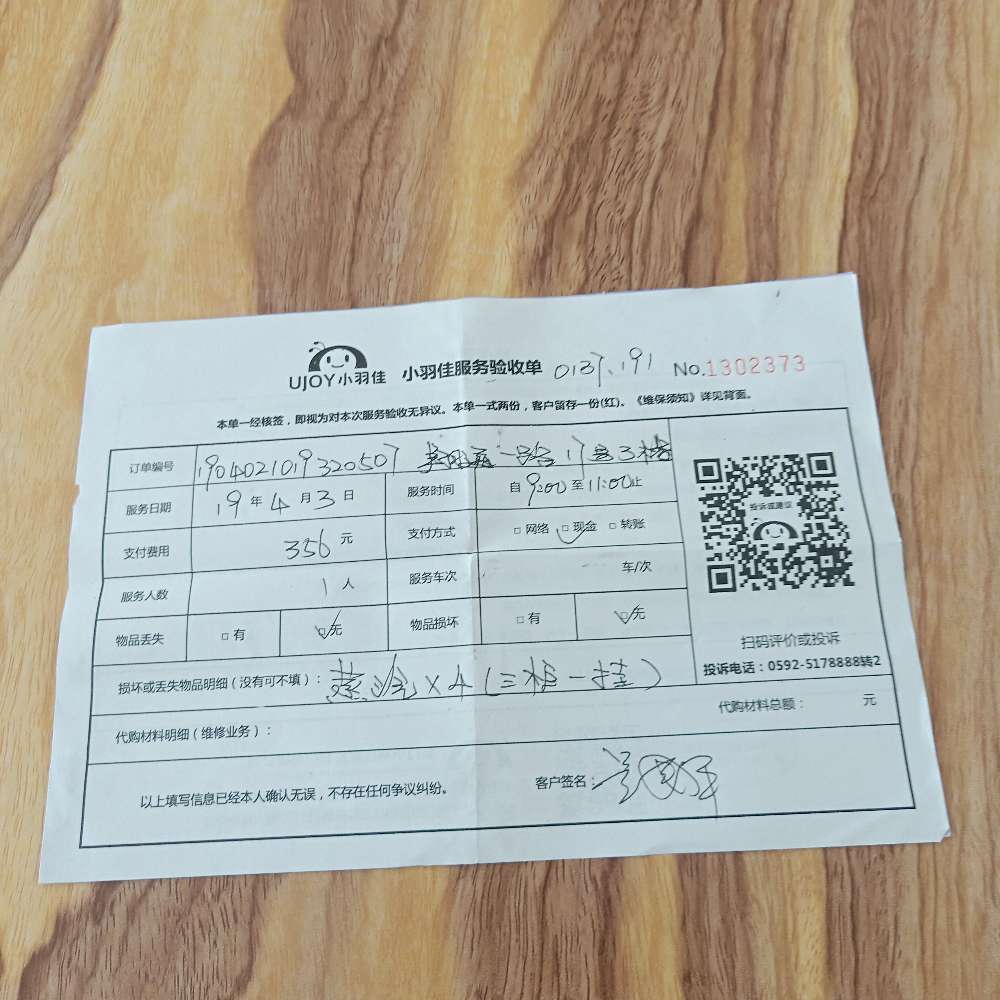 UJOY小羽佳 小羽佳服务验收单 0137.191 No.1302373
本单一经核签，即视为对本次服务验收无异议。本单一式两份，客户留存一份(红)、《维保须知》详见背面。
订单编号 1904021019320507 一路17号3楼
服务日期 19年4月3日 服务时间 自9:00至11:00止
投诉或建议
支付费用 356元 支付方式 □网络 □现金 □转账
服务人数 1人 服务车次 车/次
物品丢失 □有 □无 物品损坏 □有 □无
扫码评价或投诉
投诉电话：0592-5178888转2
损坏或丢失物品明细（没有可不填）： ×4（三柜一挂）
代购材料明细（维修业务）： 代购材料总额： 元
以上填写信息已经本人确认无误，不存在任何争议纠纷。 客户签名：